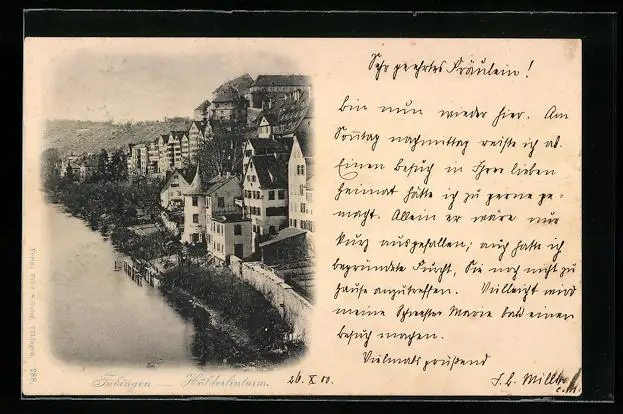 Sehr geehrtes Fräulein!
Bin nun wieder hier. Am
Sonntag nachmittag reiste ich ab.
Einen Besuch in Ihrer lieben
Heimat hätte ich zu gerne ge-
macht. Allein er wäre nur
kurz ausgefallen; auch hatte ich
begründete Furcht, Sie noch nicht zu
Hause anzutreffen. Vielleicht wird
meine Schwester Marie bald einen
Besuch machen.
Vielmals grüßend
Tübingen — Hölderlinturm.
26. X 00.
Verlag Tübingen. 288.